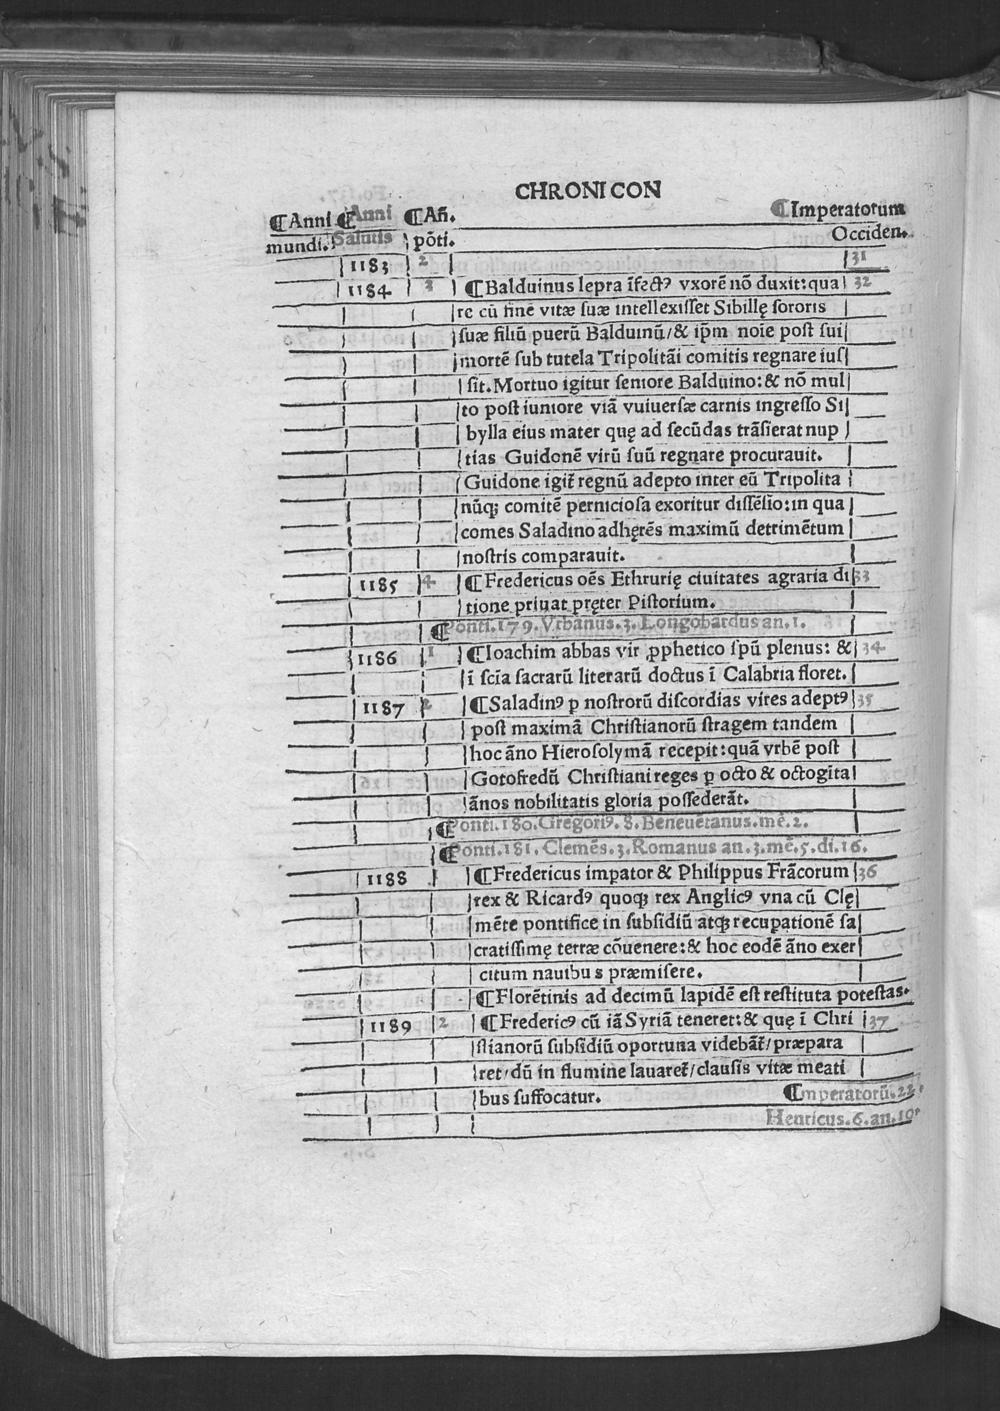 CHRONICON
¶Anni ¶Anni ¶Añ. ¶Imperatorum
mundi. Salutis põti. Occiden.
1183 2 31
1184 3 ¶Balduinus lepra ĩfectꝰ vxorē nō duxit: qua 32
re cũ finē vitæ suæ intellexisset Sibillę sororis
suæ filiũ puerũ Balduinũ/& ip̃m noĩe post sui
mortē sub tutela Tripolitãi comitis regnare ius
sit. Mortuo igitur seniore Balduino: & nō mul
to post iuniore viã vuiuersæ carnis ingresso Si
bylla eius mater quę ad secũdas trãsierat nup
tias Guidonē virũ suũ regnare procurauit.
Guidone igit̃ regnũ adepto inter eũ Tripolita
nũq; comitē perniciosa exoritur dissēsio: in qua
comes Saladino adhęrēs maximũ detrimētum
nostris comparauit.
1185 4 ¶Fredericus oēs Ethrurię ciuitates agraria di 33
tione priuat pręter Pistorium.
¶Ponti.179.Vrbanus.3.Longobardus an.1.
1186 1 ¶Ioachim abbas vir ꝓphetico spũ plenus: & 34
ĩ scĩa sacrarũ literarũ doctus ĩ Calabria floret.
1187 2 ¶Saladinꝰ p nostrorũ discordias vires adeptꝰ 35
post maximã Christianorũ stragem tandem
hoc ãno Hierosolymã recepit: quã vrbē post
Gotofredũ Christiani reges ꝑ octo & octogĩta
ãnos nobilitatis gloria possederãt.
¶Ponti.180.Gregoriꝰ.8.Beneuētanus.mē.2.
¶Ponti.181.Clemēs.3.Romanus an.3.mē.5.di.16.
1188 ¶Fredericus impator & Philippus Frãcorum 36
rex & Ricardꝰ quoq; rex Anglicꝰ vna cũ Clę
mēte pontifice in subsidiũ atq; recupationē sa
cratissimę terræ cōuenere: & hoc eodē ãno exer
citum nauibus præmisere.
¶Florētinis ad decimũ lapidē est restituta potestas.
1189 2 ¶Fredericꝰ cũ iã Syriã teneret: & quę ĩ Chri 37
stianorũ subsidiũ oportuna videbãt̃/præpara
ret/dũ in flumine lauaret̃/clausis vitæ meati
bus suffocatur. ¶Imperatorũ.22.
Henricus.6.an.10.